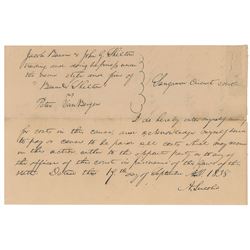 Jacob Bunn & John G Shelton
trading and doing business under
the name style and firm of
Bunn & Shelton
vs
Peter Van Bergen
Sangamon Circuit court
I do hereby enter myself security
for costs in this cause, and acknowledge myself bound
to pay or cause to be paid all costs which may accrue
in this action either to the opposite party or to any of
the officers of this court in pursuance of the laws of this
state. Dated this 17th day of September A.D. 1838
A. Lincoln